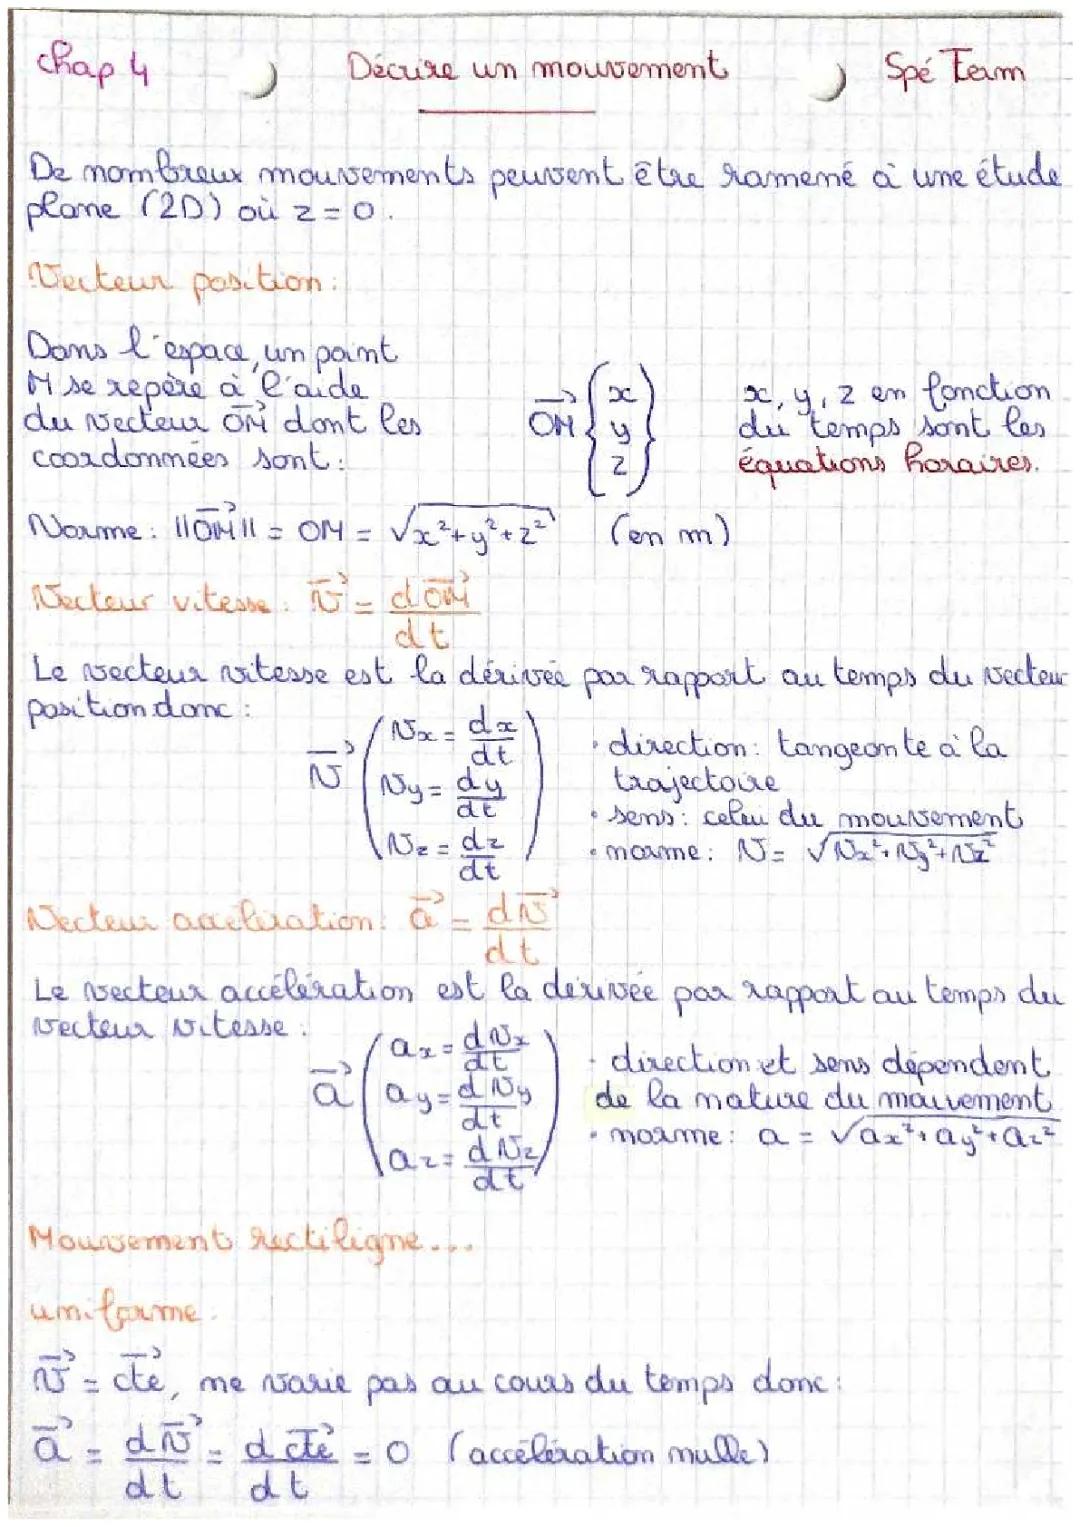 Chap 4 Décrire un mouvement Spé Term
De nombreux mouvements peuvent être ramené à une étude
plane (2D) où z = 0.
Vecteur position :
Dans l'espace, un point
M se repère à l'aide
du vecteur OM⃗ dont les
coordonnées sont :
OM⃗ { x y z }
x, y, z en fonction
du temps sont les
équations horaires.
Norme : ||OM⃗|| = OM = √(x² + y² + z²) (en m)
Vecteur vitesse : v⃗ = dOM⃗/dt
Le vecteur vitesse est la dérivée par rapport au temps du vecteur
position donc :
v⃗ ( vx = dx/dt
vy = dy/dt
vz = dz/dt )
• direction : tangeante à la
trajectoire
• sens : celui du mouvement
• norme : v = √(vx² + vy² + vz²)
Vecteur accélération : a⃗ = dv⃗/dt
Le vecteur accélération est la dérivée par rapport au temps du
vecteur vitesse :
a⃗ ( ax = dvx/dt
ay = dvy/dt
az = dvz/dt )
• direction et sens dépendent
de la nature du mouvement
• norme : a = √(ax² + ay² + az²)
Mouvement rectiligne...
uniforme :
v⃗ = cte⃗, ne varie pas au cours du temps donc :
a⃗ = dv⃗/dt = d cte⃗/dt = 0 (accélération nulle)